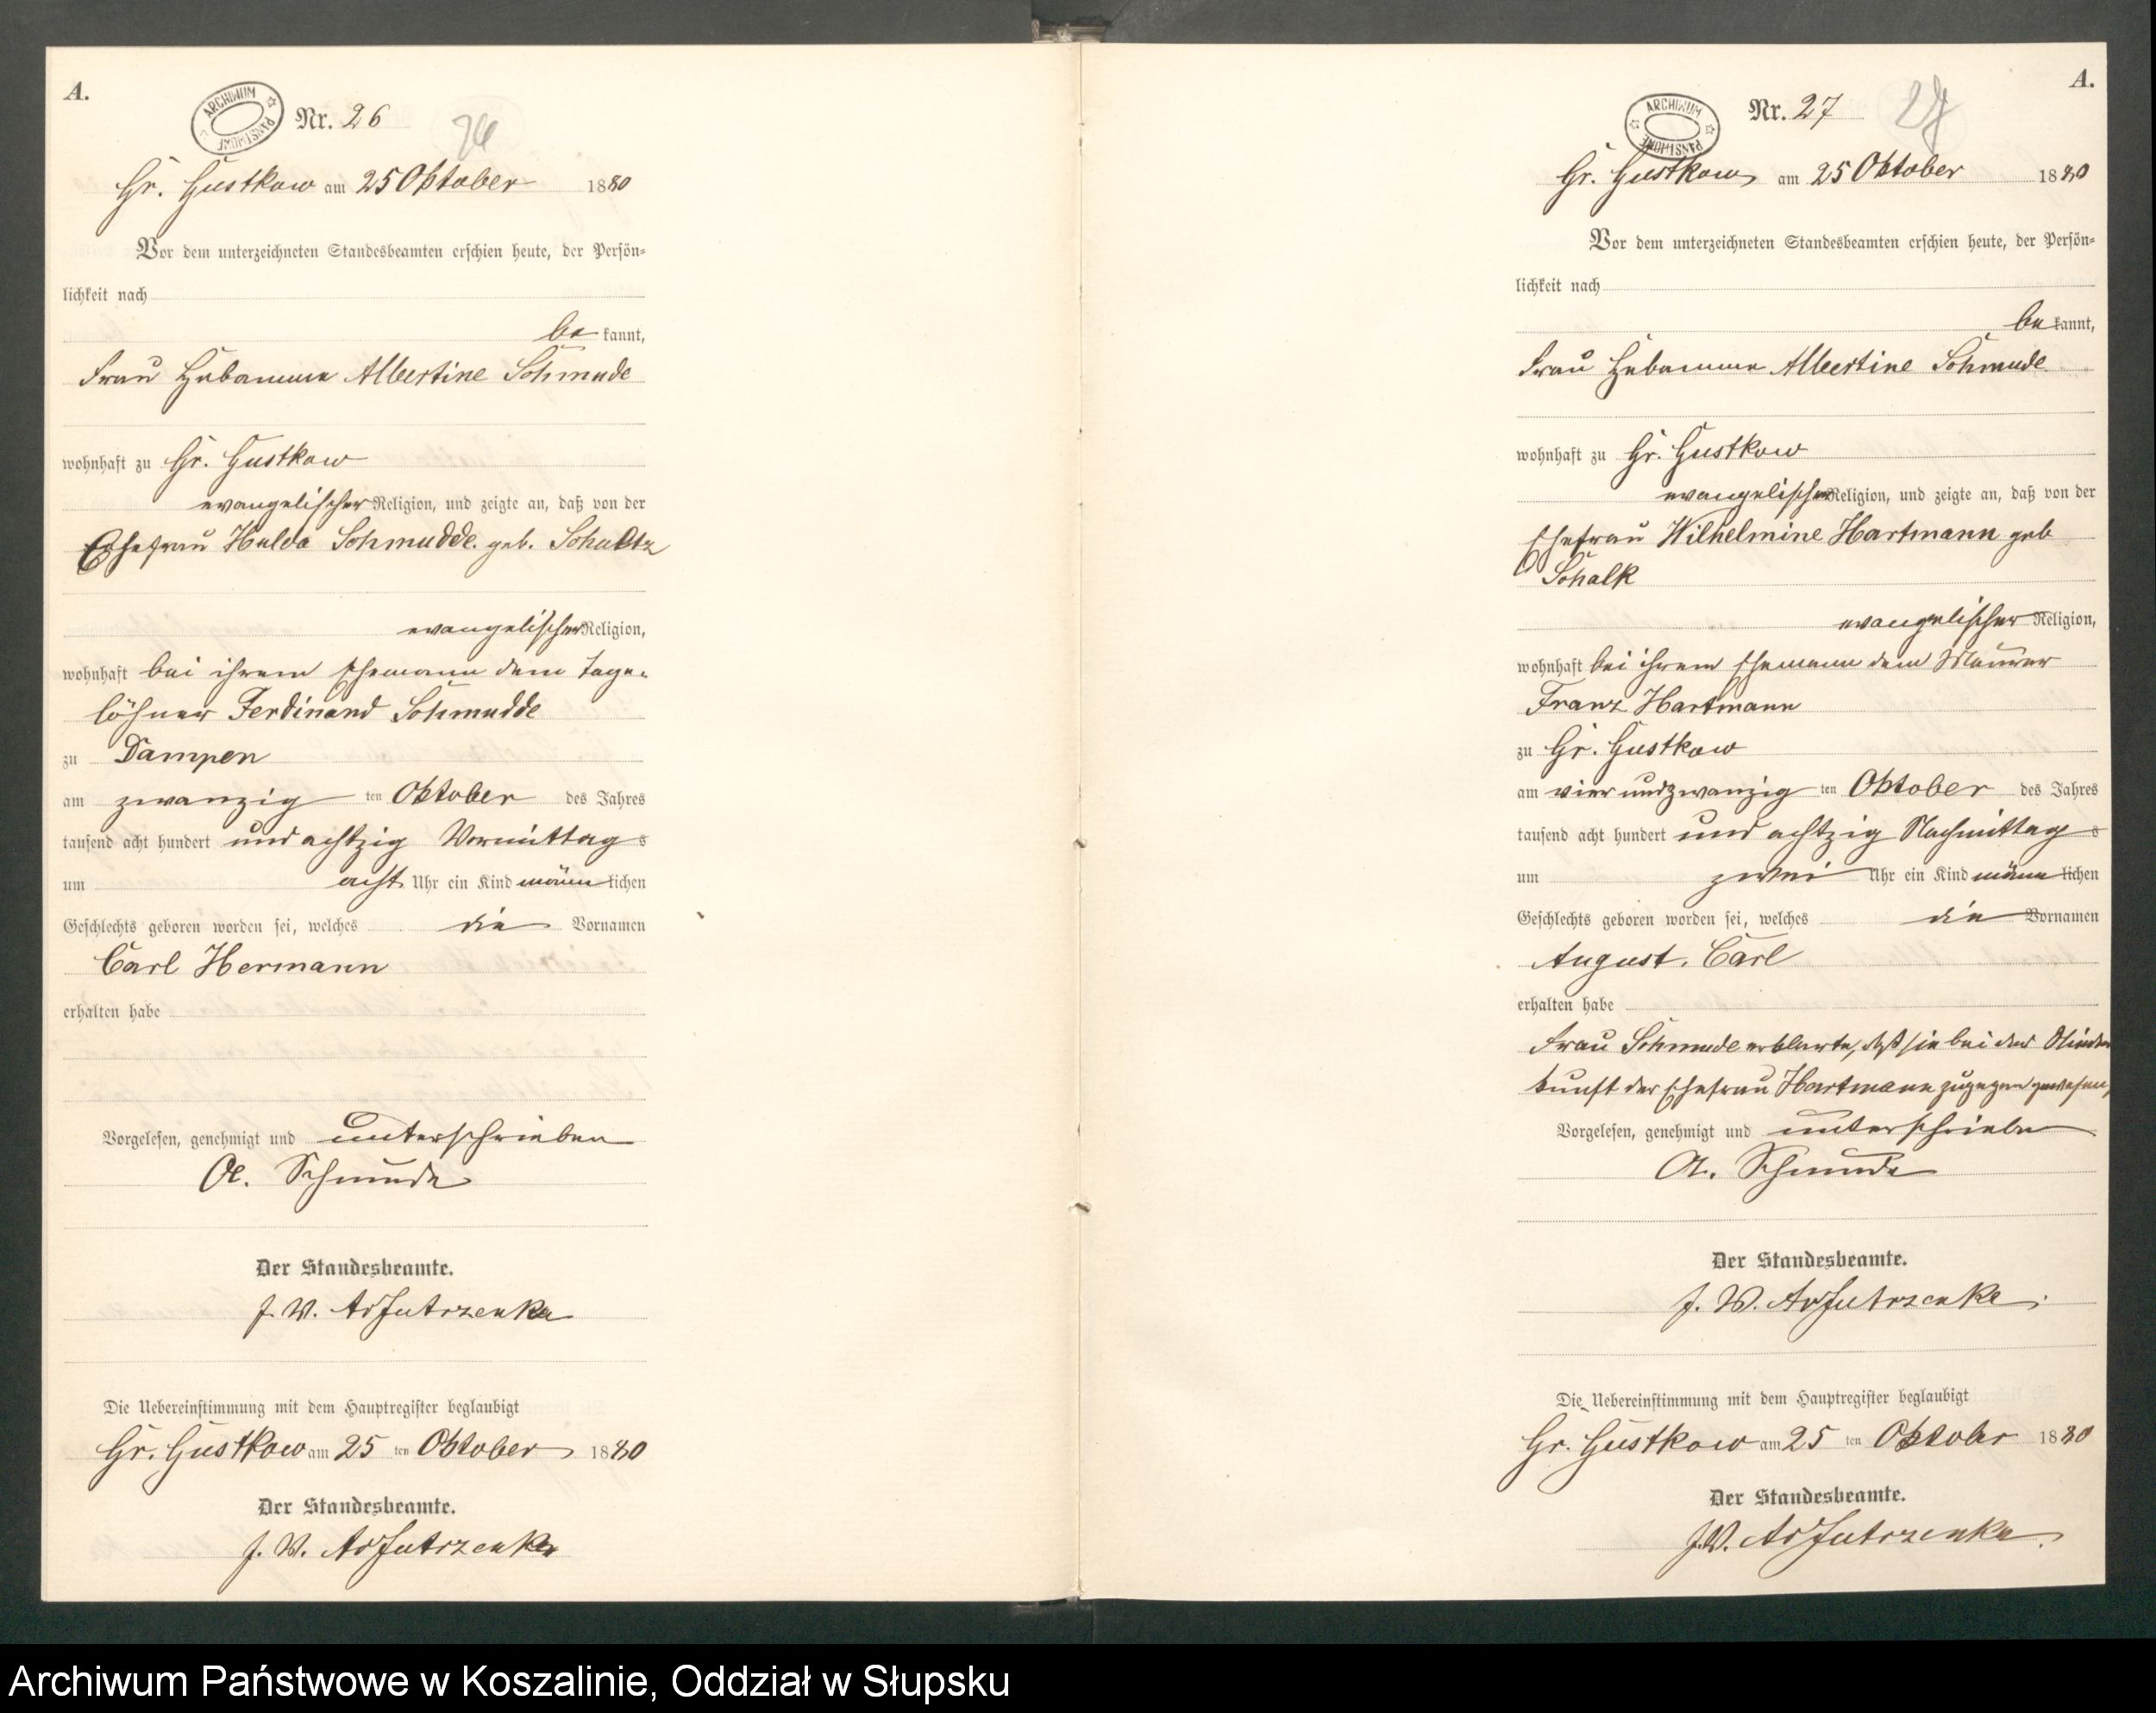 A.
ARCHIWUM PAŃSTWOWE
Nr. 26
26
Gr. Gustkow am 25 Oktober 1880
Vor dem unterzeichneten Standesbeamten erschien heute, der Persön-
lichkeit nach
be kannt,
Frau Hebamme Albertine Schmude
wohnhaft zu Gr. Gustkow
evangelischer Religion, und zeigte an, daß von der
Ehefrau Hulda Schmudde geb. Schultz
evangelischer Religion,
wohnhaft bei ihrem Ehemann dem Tage-
löhner Ferdinand Schmudde
zu Dampen
am zwanzig ten Oktober des Jahres
tausend acht hundert und achtzig Vormittag s
um acht Uhr ein Kind männ lichen
Geschlechts geboren worden sei, welches die Vornamen
Carl Hermann
erhalten habe
Vorgelesen, genehmigt und unterschrieben
A. Schmude
Der Standesbeamte.
J. W. Jutrzenka
Die Uebereinstimmung mit dem Hauptregister beglaubigt
Gr. Gustkow am 25 ten Oktober 1880
Der Standesbeamte.
J. W. Jutrzenka
A.
ARCHIWUM PAŃSTWOWE
Nr. 27
27
Gr. Gustkow am 25 Oktober 1880
Vor dem unterzeichneten Standesbeamten erschien heute, der Persön-
lichkeit nach
be kannt,
Frau Hebamme Albertine Schmude
wohnhaft zu Gr. Gustkow
evangelischer Religion, und zeigte an, daß von der
Ehefrau Wilhelmine Hartmann geb
Schalk
evangelischer Religion,
wohnhaft bei ihrem Ehemann dem Maurer
Franz Hartmann
zu Gr. Gustkow
am vier und zwanzig ten Oktober des Jahres
tausend acht hundert und achtzig Nachmittag s
um zwei Uhr ein Kind männ lichen
Geschlechts geboren worden sei, welches die Vornamen
August. Carl
erhalten habe
Frau Schmude erklarte, daß sie bei der Nieder
kunft der Ehefrau Hartmann zugegen gewesen,
Vorgelesen, genehmigt und unterschrieben
A. Schmude
Der Standesbeamte.
J. W. Jutrzenka.
Die Uebereinstimmung mit dem Hauptregister beglaubigt
Gr. Gustkow am 25 ten Oktober 1880
Der Standesbeamte.
J. W. Jutrzenka.
Archiwum Państwowe w Koszalinie, Oddział w Słupsku